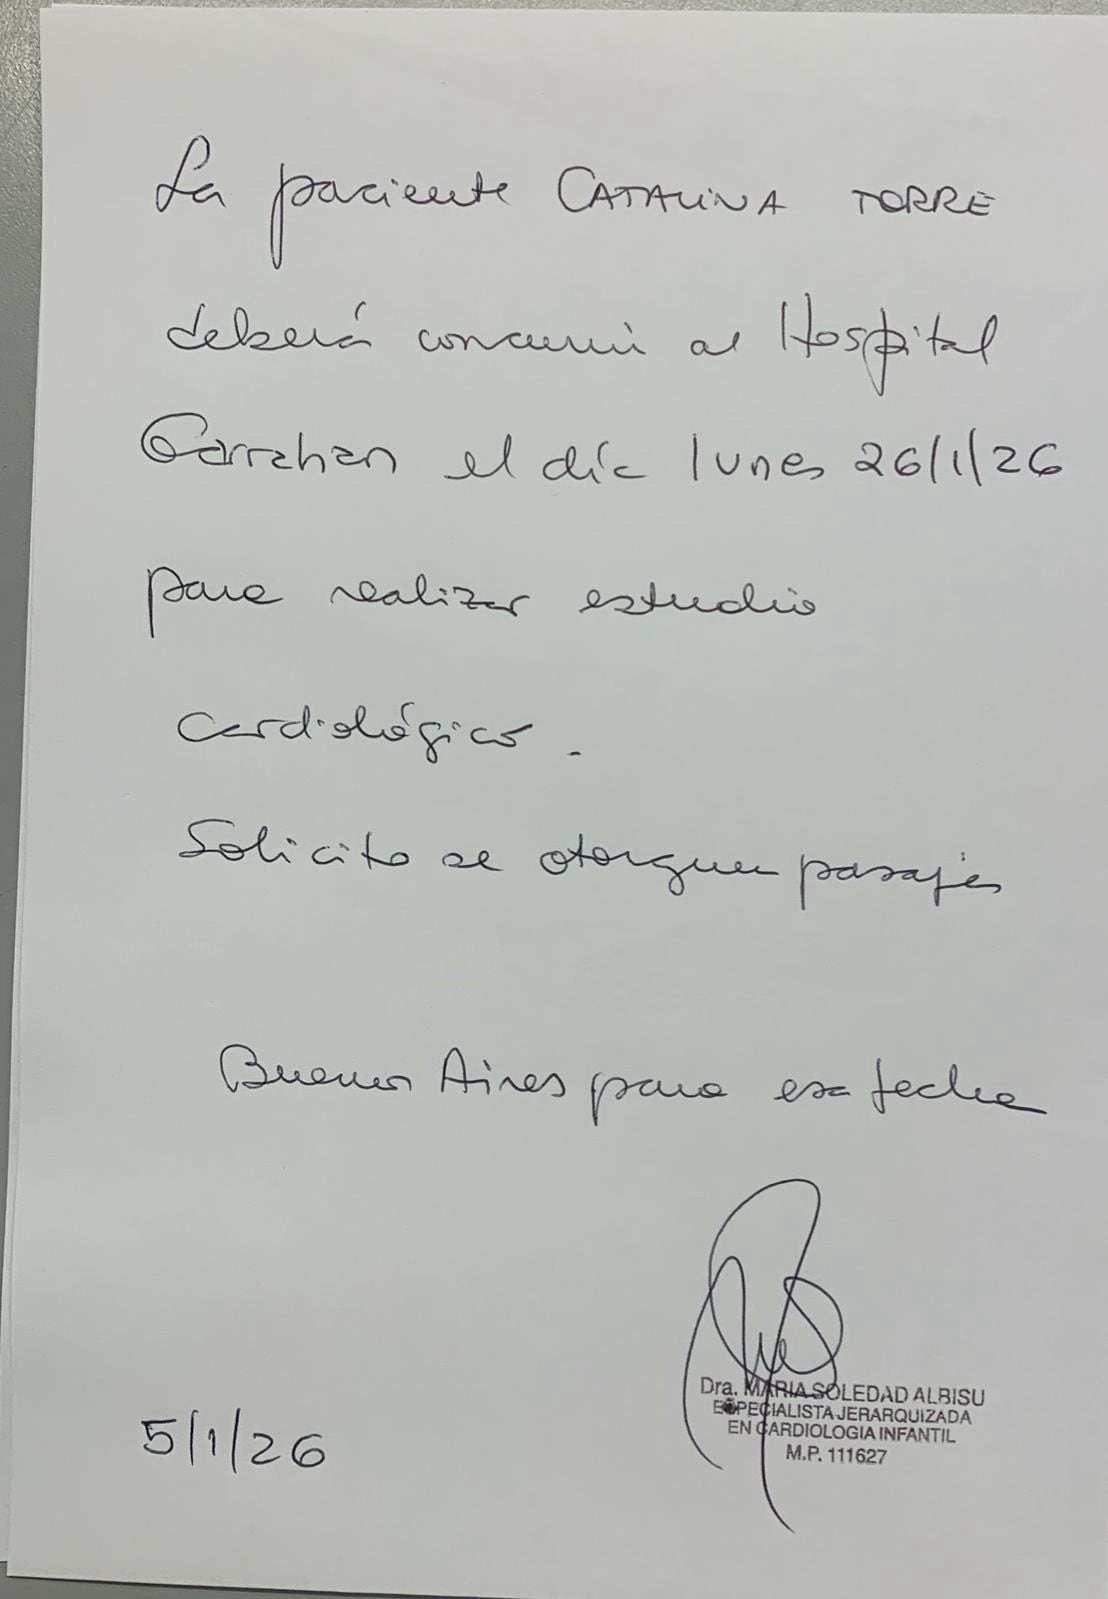 La paciente CATALINA TORRE
deberá concurrir al Hospital
Garrahan el día lunes 26/1/26
para realizar estudio
cardiológico.
Solicito se otorguen pasajes
Buenos Aires para esa fecha
Dra. MARIA SOLEDAD ALBISU
ESPECIALISTA JERARQUIZADA
EN CARDIOLOGIA INFANTIL
M.P. 111627
5/1/26